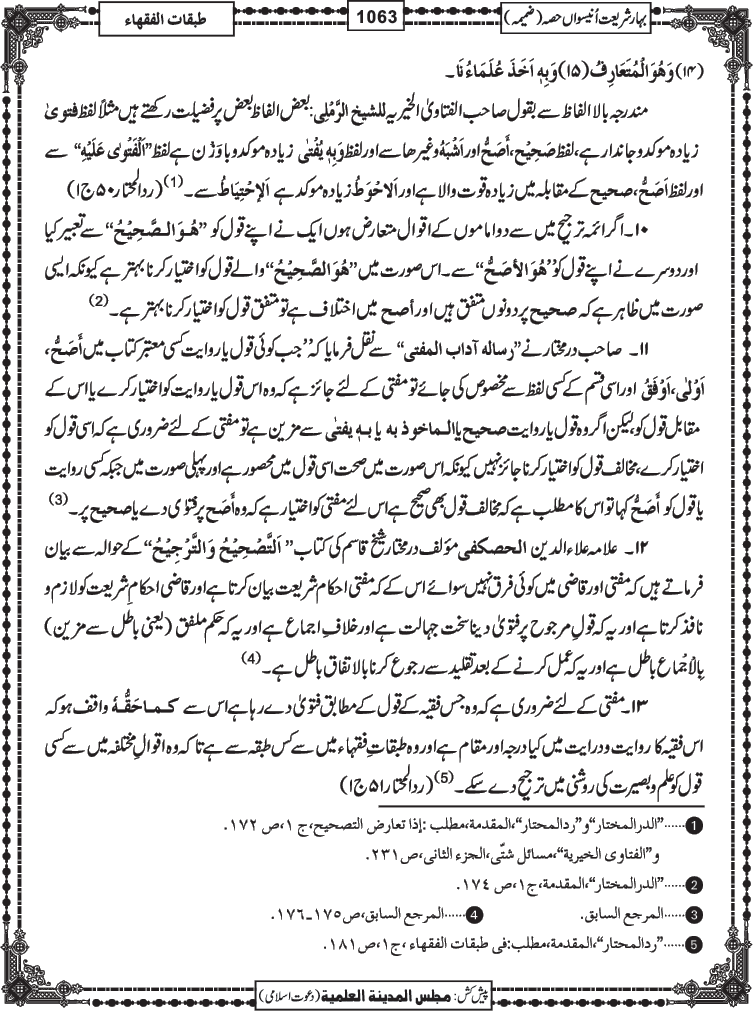 بہارشریعت اُنیسواں حصہ (ضمیمہ)
1063
طبقات الفقهاء
(۱۴) وَهُوَ الْمُتَعَارِفُ (۱۵) وَبِهٖ اَخَذَ عُلَمَاءُنَا۔
مندرجہ بالا الفاظ سے بقول صاحب الفتاویٰ الخیریہ للشیخ الرَّمْلِی: بعض الفاظ بعض پر فضیلت رکھتے ہیں مثلاً لفظ فتویٰ
زیادہ موکد و جاندار ہے، لفظ صَحِیْح، أَصَحُّ اور اَشْبَهُ وغیرھا سے اور لفظ وَبِهٖ یُفْتٰی زیادہ موکد و باوَزْن ہے لفظ ”اَلْفَتْویٰ عَلَیْهِ“ سے
اور لفظ أَصَحُّ، صحیح کے مقابلہ میں زیادہ قوت والا ہے اور اَلاحْوَطُ زیادہ موکد ہے اَلإحْتِیَاطُ سے۔ (1) (ردالمحتار ۵۰ ج۱)
۱۰۔ اگر ائمہ ترجیح میں سے دو اماموں کے اقوال متعارض ہوں ایک نے اپنے قول کو ”هُوَ الصَّحِیْحُ“ سے تعبیر کیا
اور دوسرے نے اپنے قول کو ”هُوَ الأصَحُّ“ سے۔ اس صورت میں ”هُوَ الصَّحِیْحُ“ والے قول کو اختیار کرنا بہتر ہے کیونکہ ایسی
صورت میں ظاہر ہے کہ صحیح پر دونوں متفق ہیں اور أصح میں اختلاف ہے تو متفق قول کو اختیار کرنا بہتر ہے۔ (2)
۱۱۔ صاحب درمختار نے ”رسالہ آداب المفتی“ سے نقل فرمایا کہ ”جب کوئی قول یا روایت کسی معتبر کتاب میں أَصَحُّ،
اَوْلٰی، اَوْفَقُ اور اسی قسم کے کسی لفظ سے مخصوص کی جائے تو مفتی کے لئے جائز ہے کہ وہ اس قول یا روایت کو اختیار کرے یا اس کے
مقابل قول کو، لیکن اگر وہ قول یا روایت صحیح یا الماخوذ بہ یا بہٖ یفتٰی سے مزین ہے تو مفتی کے لئے ضروری ہے کہ اسی قول کو
اختیار کرے، مخالف قول کو اختیار کرنا جائز نہیں کیونکہ اس صورت میں صحت اسی قول میں محصور ہے اور پہلی صورت میں جبکہ کسی روایت
یا قول کو أَصَحُّ کہا تو اس کا مطلب ہے کہ مخالف قول بھی صحیح ہے اس لئے مفتی کو اختیار ہے کہ وہ أَصَح پر فتوٰی دے یا صحیح پر۔ (3)
۱۲۔ علامہ علاء الدین الحصکفی مؤلف درمختار شیخ قاسم کی کتاب ”اَلتَّصْحِیْحُ وَالتَّرْجِیْحُ“ کے حوالہ سے بیان
فرماتے ہیں کہ مفتی اور قاضی میں کوئی فرق نہیں سوائے اس کے کہ مفتی احکام شریعت بیان کرتا ہے اور قاضی احکامِ شریعت کو لازم و
نافذ کرتا ہے اور یہ کہ قولِ مرجوح پر فتویٰ دینا سخت جہالت ہے اور خلافِ اجماع ہے اور یہ کہ حکم ملفق (یعنی باطل سے مزین)
بِالْاِجْماع باطل ہے اور یہ کہ عمل کرنے کے بعد تقلید سے رجوع کرنا بالاتفاق باطل ہے۔ (4)
۱۳۔ مفتی کے لئے ضروری ہے کہ وہ جس فقیہ کے قول کے مطابق فتویٰ دے رہا ہے اس سے کماحَقُّہٗ واقف ہو کہ
اس فقیہ کا روایت و درایت میں کیا درجہ اور مقام ہے اور وہ طبقاتِ فقہاء میں سے کس طبقہ سے ہے تاکہ وہ اقوالِ مختلفہ میں سے کسی
قول کو علم و بصیرت کی روشنی میں ترجیح دے سکے۔ (5) (ردالمحتار ۵۱ ج۱)
1 ......”الدرالمختار“ و ”ردالمحتار“، المقدمة، مطلب: إذا تعارض التصحیح، ج ۱، ص ۱۷۲.
و ”الفتاوی الخیریة“، مسائل شتّی، الجزء الثانی، ص ۲۳۱.
2 ......”الدرالمختار“، المقدمة، ج۱، ص ۱۷٤.
3 ......المرجع السابق. 4 ......المرجع السابق، ص ۱۷۵۔۱۷۶.
5 ......”ردالمحتار“، المقدمة، مطلب: فی طبقات الفقهاء، ج۱، ص ۱۸۱.
پیش کش: مجلس المدینة العلمیة (دعوت اسلامی)